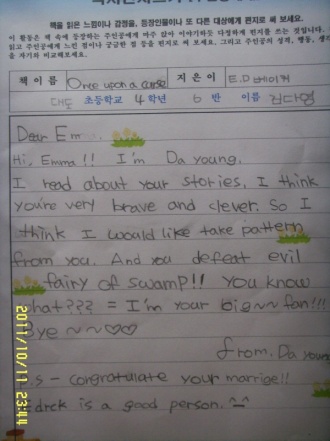 책을 읽은 느낌이나 감정을, 등장인물이나 또 다른 대상에게 편지로 써 보세요.
이 활동은 책 속에 등장하는 주인공에게 마주 앉아 이야기하듯 다정하게 편지를 쓰는 것입니다.
읽고 주인공에게 느낀 점이나 궁금한 점 등을 편지로 써 보세요. 그리고 주인공의 성격, 행동,
을 자기와 비교해보세요.
책 이름 Once upon a curse 지은이 E.D 베이커
대도 초등학교 4 학년 6 반 이름 김다영
Dear Em
Hi, Emma!! I'm Da young.
I read about your stories, I think
you're very brave and clever. So I
think I would like take pattern
from you. And you defeat evil
fairy of swamp!! You know
what??? = I'm your big~~ fan!!!
Bye ~~♡♡
from. Da young
P.S - congratulate your marrige!!
Edrck is a good person. ^_^
2011/10/11 23:44